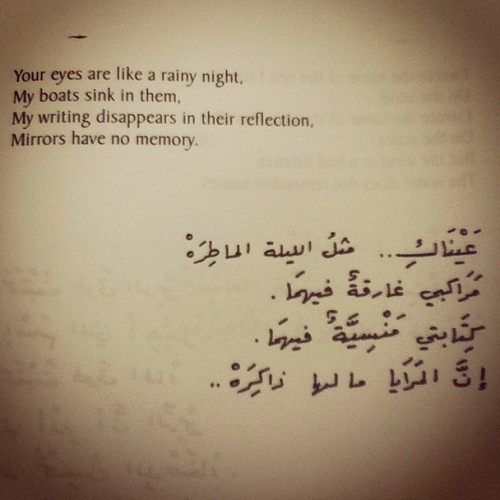 Your eyes are like a rainy night,
My boats sink in them,
My writing disappears in their reflection,
Mirrors have no memory.
عَيْنَاكِ.. مثلُ الليلة الماطِرَهْ
مَرَاكبي غارقةٌ فيهمَا.
كِتَابتي مَنْسِيَّةٌ فيهمَا.
إنَّ المَرَايا ما لها ذاكِرَهْ..